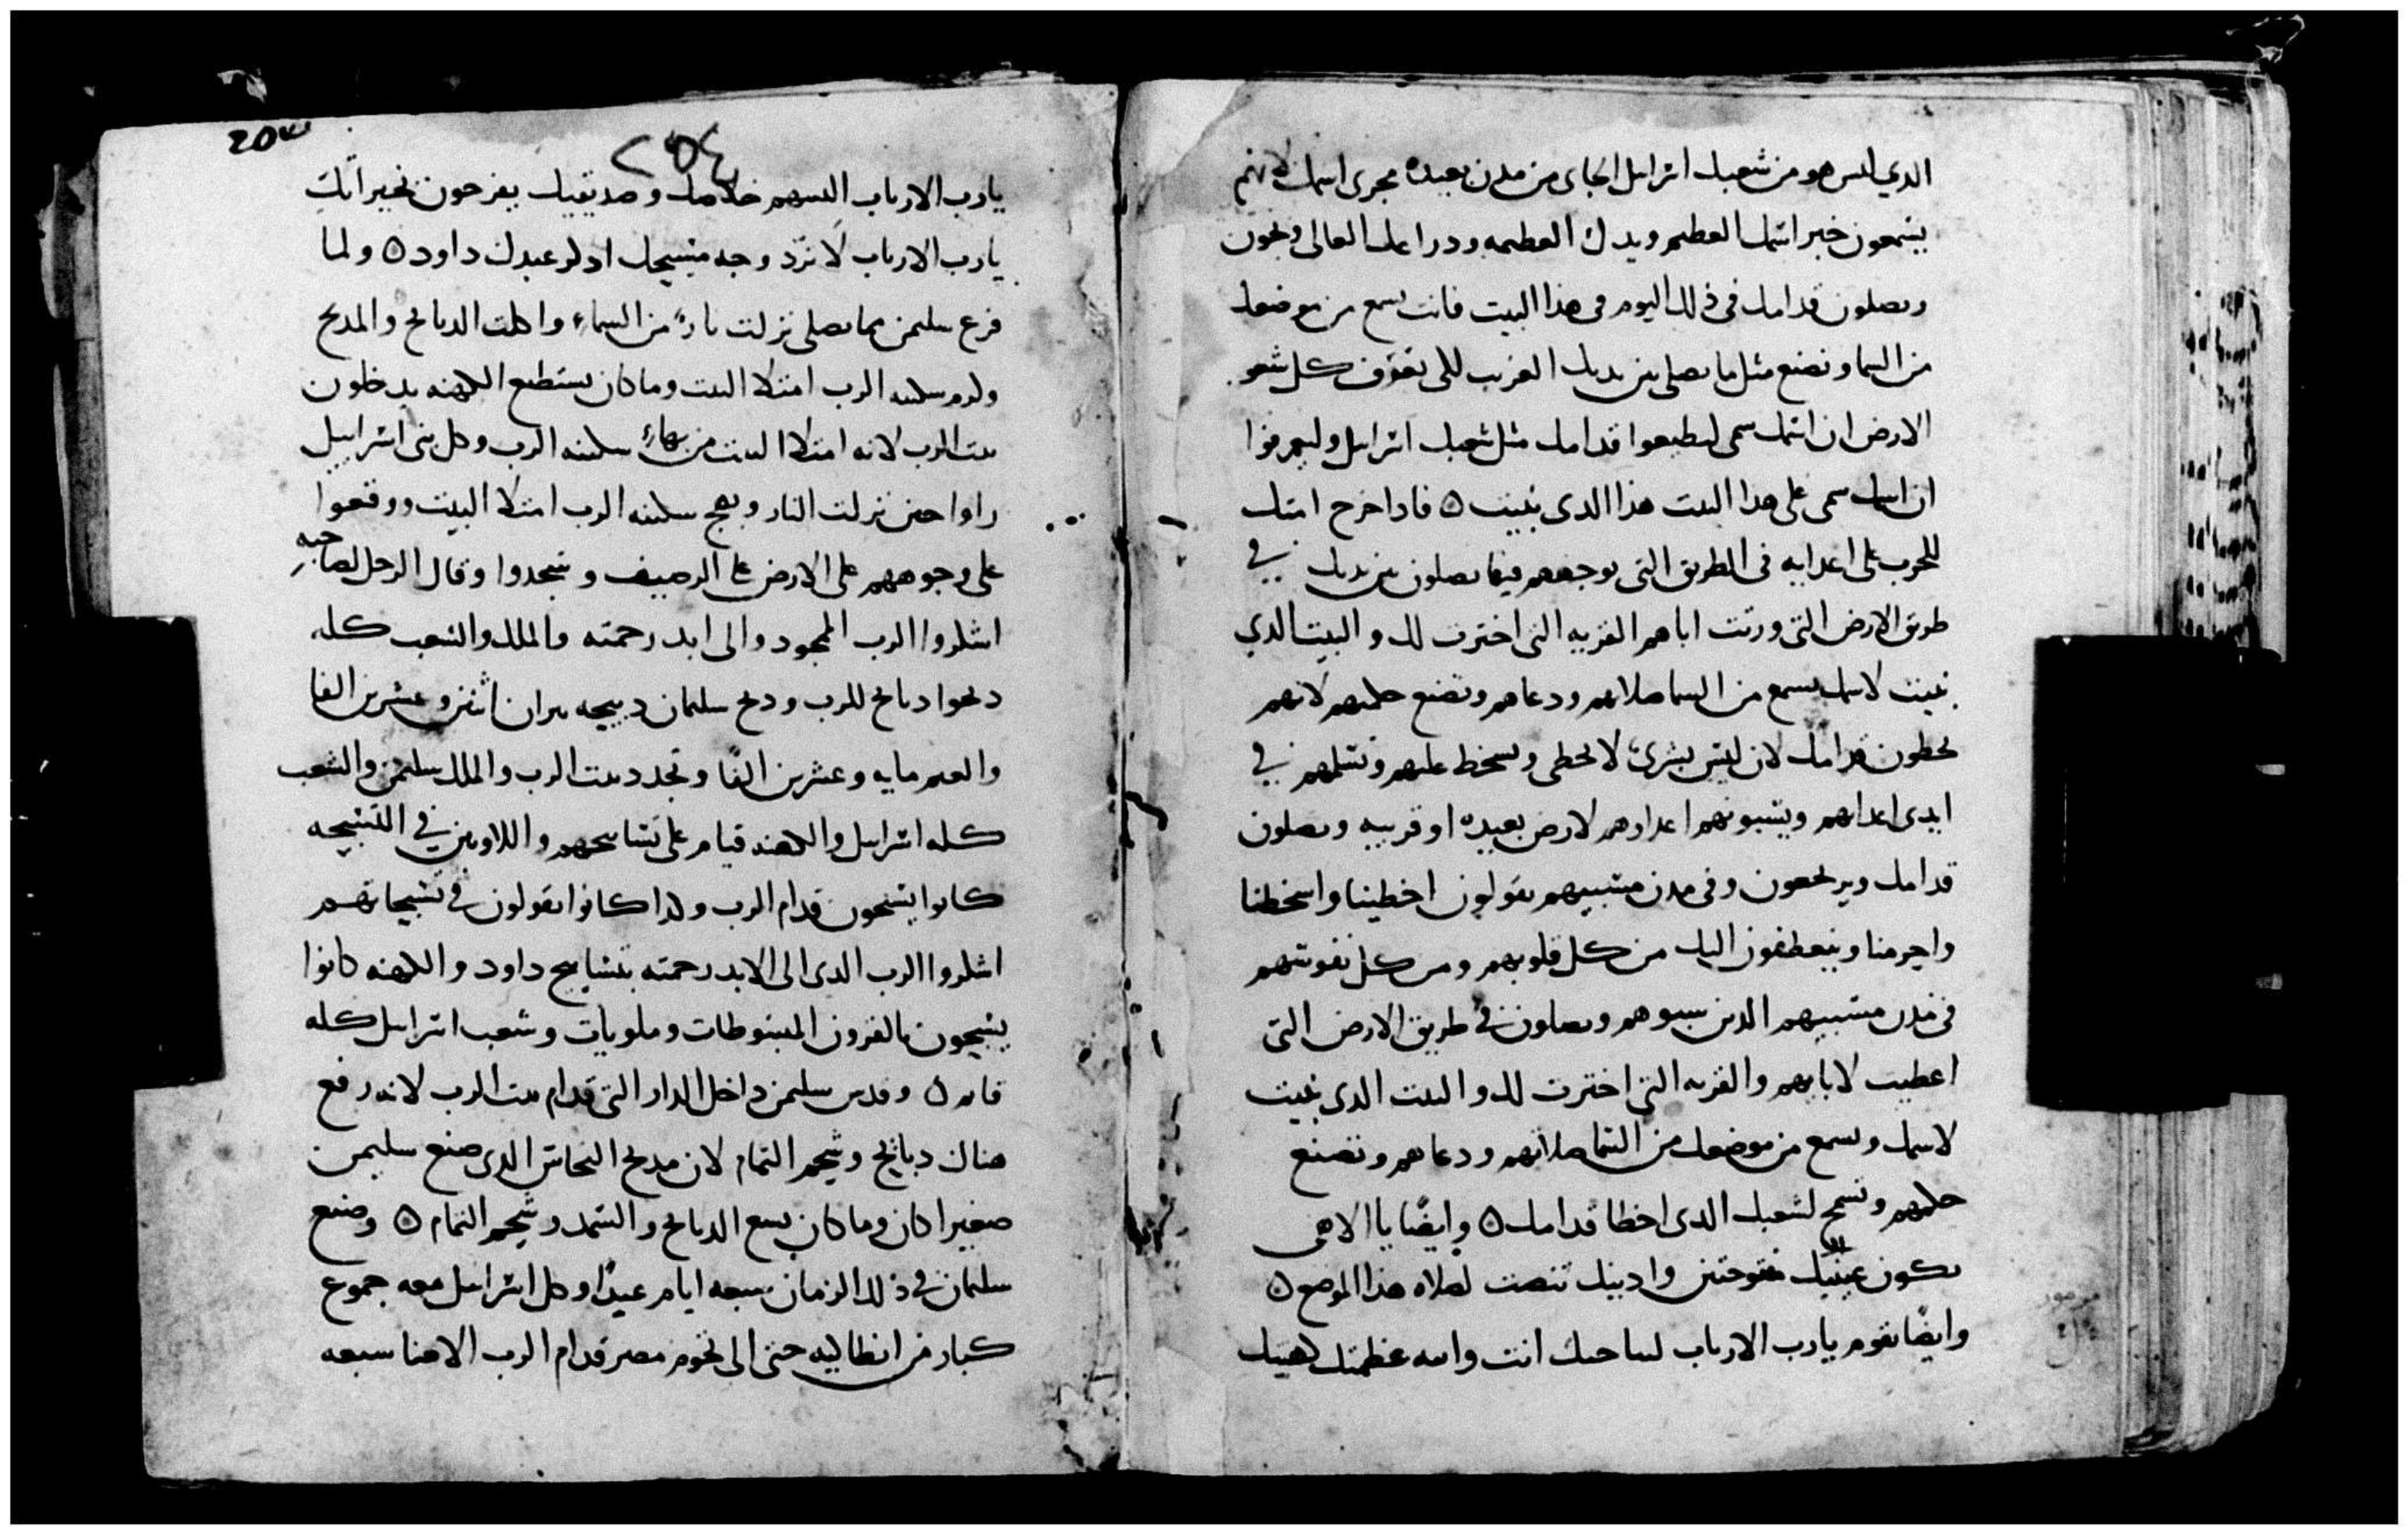 الدي ليس هو من شعبك اسرايل الجاي من مدن بعيده مجري اسمك لانهم
يسمعون خبر اسمك العظيم ويدك العظيمه ودراعك العالي ويجون
ويصلون قدامك في ذلك اليوم في هذا البيت فانت تسمع من موضعك
من السما وتصنع مثل ما يصلي بين يديك الغريب للي تعرف كل شعو
الارض ان اسمك سمي ليطيعوا قدامك مثل شعبك اسرايل وليعرفوا
ان اسمك سمي على هدا البيت هذا الدي بنيت ٥ فادا خرج امتك
للحرب على اعدايه في الطريق التي توجههم فيها يصلون بين يديك في
طريق الارض التي ورتت اباهم القريه التي اخترت لك والبيت الدي
بنيت لاسمك تسمع من السما صلاتهم ودعاهم وتصنع حكمهم لانهم
يخطون قدامك لان ليس بشري لا يخطي وتسخط عليهم وتسلمهم في
ايدي اعدايهم ويسبونهم اعداوهم لارض بعيده او قريبه ويصلون
قدامك ويرجعون وفي مدن مسبيهم يقولون اخطينا واسخطنا
واجرمنا وينعطفون اليك من كل قلوبهم ومن كل نفوسهم
في مدن مسبيهم الدين سبوهم ويصلون في طريق الارض التي
اعطيت لابايهم والقريه التي اخترت لك والبيت الدي بنيت
لاسمك وتسمع من موضعك من السما صلاتهم ودعاهم وتصنع
حكمهم وتسمح لشعبك الدي اخطا قدامك ٥ وايضًا يا الاهي
تكون عينيك مفتوحتين وادنيك تنصت لصلاه هذا الموضع ٥
وايضًا تقوم يارب الارباب لنياحك انت وانيه عظمتك كهنتك
٢٥٤
يارب الارباب البسهم خلاصك وصديقيك يفرحون بخيراتك
يارب الارباب لا ترد وجه مسيحك ادكر عبدك داود ٥ ولما
فرغ سليمن مما يصلي نزلت نارٌ من السماء واكلت الدبايح والمدبح
وكرم سكينه الرب امتلا البيت وما كان يستطيع الكهنه يدخلون
بيت الرب لانه امتلا البيت من بهاء سكينه الرب وكل بني اسراييل
راوا حين نزلت النار وبهج سكينه الرب امتلا البيت ووقعوا
على وجوههم على الارض على الرصيف وسجدوا وقال الرجل لصاحبه
اشكروا الرب المجود والى ابد رحمته والملك والشعب كله
دبحوا دبايح للرب ودبح سليمان دبيحه تيران اثنين وعشرين الفا
والغنم مايه وعشرين الفًا وتجدد بيت الرب والملك سليمن والشعب
كله اسرايل والكهنه قيام على تسابيحهم واللاويين في التسبيحه
كانوا يسبحون قدام الرب وكدا كانوا يقولون في تسبيحاتهم
اشكروا الرب الدي الى الابد رحمته بتسابيح داود والكهنه كانوا
يسبحون بالقرون المبسوطات وملويات وشعب اسرايل كله
قايم ٥ وقدس سليمن داخل الدار التي قدام بيت الرب لانه رفع
هناك دبايح وشحم التمام لان مدبح النحاس الدي صنع سليمن
صغيرا كان وما كان يسع الدبايح والسمد وشحم التمام ٥ وصنع
سليمان في ذلك الزمان سبعه ايام عيدًا وكل اسرايل معه جموع
كبار من انطاليه حتى الى تخوم مصر قدام الرب الاهنا سبعه